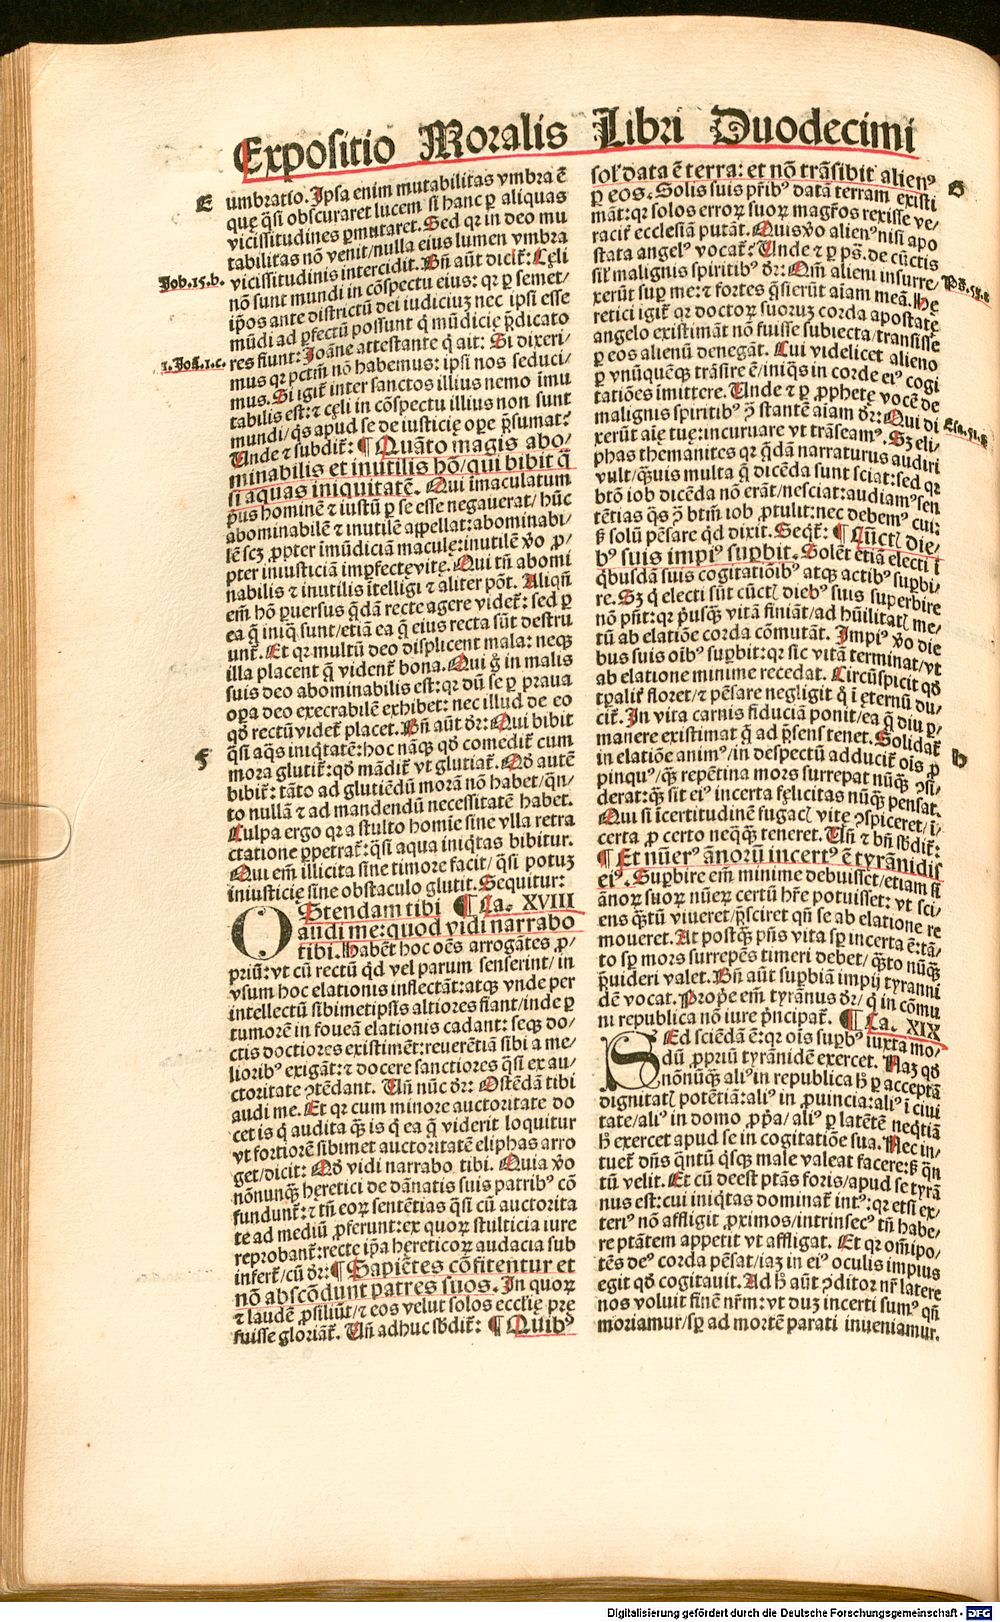 Expositio Moralis Libri Duodecimi
E
umbratio. Ipsa enim mutabilitas vmbra ē
que q̄si obscuraret lucem si hanc ꝑ aliquas
vicissitudines ꝑmutaret. Sed qꝛ in deo mu
tabilitas nō venit/nulla eius lumen vmbra
Job.15.b.
vicissitudinis intercidit. Bn̄ aūt dicit᷑: Cęli
nō sunt mundi in cōspectu eius: qꝛ ꝑ semet/
ip̄os ante districtū dei iudiciuȝ nec ipsi esse
mūdi ad ꝑfectū possunt q̇ mūdicię p̄dicato
1.Joā.1.c.
res fiunt: Joāne attestante q̇ ait: Si dixeri/
mus qꝛ pctm̄ nō habemus: ipsi nos seduci/
mus. Si igit᷑ inter sanctos illius nemo īmu
tabilis est: ⁊ cęli in cōspectu illius non sunt
mundi/q̇s apud se de iusticię oꝑe p̄sumat?
Unde ⁊ subdit᷑: ¶ Quāto magis abo/
minabilis et inutilis hō/qui bibit q̄
si aquas iniquitatē. Qui īmaculatum
p̄us hominē ⁊ iustū ꝑ se esse negauerat/hūc
abominabilē ⁊ inutilē appellat: abominabi/
lē scȝ ꝓpter imūdiciā maculę: inutilē v̄o ꝓ/
pter iniusticiā imꝑfecte vitę. Qui tn̄ abomi
nabilis ⁊ inutilis ītelligi ⁊ aliter pōt. Aliqn̄
em̄ hō ꝑuersus q̄dā recte agere videt᷑: sed ꝑ
ea q̄ iniq̄ sunt/etiā ea q̄ eius recta sūt destru
unt᷑. Et qꝛ multū deo displicent mala: neqꝫ
illa placent q̄ vident᷑ bona. Qui g̊ in malis
suis deo abominabilis est: qꝛ dū se ꝑ praua
oꝑa deo execrabilē exhibet: nec illud de eo
qđ rectū videt᷑ placet. Bn̄ aūt dr̄: Qui bibit
F
q̄si aq̄s iniq̇tatē: hoc nāqꝫ qđ comedit᷑ cum
mora glutit᷑: qđ mādit᷑ vt glutiat᷑. Qđ autē
bibit᷑: tāto ad glutiēdū morā nō habet/qn̄/
to nullā ⁊ ad mandendū necessitatē habet.
Culpa ergo qꝛ a stulto homīe sine vlla retra
ctatione ꝑpetrat᷑: q̄si aqua iniq̇tas bibitur.
Qui em̄ illicita sine timore facit/q̄si potuȝ
iniusticię sine obstaculo glutit. Sequitur:
OStendam tibi ¶ Ca. XVIII
audi me: quod vidi narrabo
tibi. Habēt hoc oēs arrogātes ꝓ/
priū: vt cū rectū q̇d vel parum senserint/in
vsum hoc elationis inflectāt: atqꝫ vnde per
intellectū sibimetipsis altiores fiant/inde ꝑ
tumorē in foueā elationis cadant: seqꝫ do/
ctis doctiores existimēt: reuerētiā sibi a me/
lioribꝰ exigāt: ⁊ docere sanctiores q̄si ex au/
ctoritate ꝯtēdant. Un̄ nūc dr̄: Ostēdā tibi
audi me. Et qꝛ cum minore auctoritate do
cet is q̇ audita q̄ꝫ is q̇ ea q̄ viderit loquitur
vt fortiorē sibimet auctoritatē eliphas arro
get/dicit: Qđ vidi narrabo tibi. Quia v̄o
nōnunq̄ꝫ hęretici de dānatis suis patribꝰ cō
fundunt᷑: ⁊ tn̄ eoꝝ sentētias q̄si cū auctorita
te ad mediū ꝓferunt: ex quoꝝ stulticia iure
reprobant᷑: recte ip̄a hęreticoꝝ audacia sub
infert᷑/cū dr̄: ¶ Sapiētes cōfitentur et
nō abscōdunt patres suos. In quoꝝ
⁊ laudē ꝓsiliūt/⁊ eos velut solos ecclię prę
fuisse gloriāt᷑. Un̄ adhuc sbđit᷑: ¶ Quibꝰ
G
solꝭ data ē terra: et nō trāsibit alienꝰ
ꝑ eos. Solis suis pr̄ibꝰ datā terram existi
māt: qꝛ solos erroꝝ suoꝝ mag̃ros rexisse ve/
racit᷑ ecclesiā putāt. Quis v̄o alienꝰ nisi apo
stata angelꝰ vocat᷑? Unde ⁊ ꝑ ps̄. de cūctis
Ps̄.53.a
sil᷑ malignis spiritibꝰ dr̄: Qm̄ alieni insurre/
xerūt suꝑ me: ⁊ fortes q̄sierūt aīam meā. Hę
retici igit᷑ qꝛ doctoꝝ suoruȝ corda apostatę
angelo existimāt nō fuisse subiecta/transisse
ꝑ eos alienū denegāt. Cui videlicet alieno
ꝑ vnūquēqꝫ trāsire ē/iniq̇s in corde eiꝰ cogi
tatiōes īmittere. Unde ⁊ ꝑ ꝓphetę vocē de
Esa.51.g
malignis spiritibꝰ ꝯstantē aīam dr̄: Qui di
xerūt aīę tuę: incuruare vt trāseamꝰ. Sȝ eli/
phas themanites qꝛ q̄dā narraturus audiri
vult/q̄ꝫuis multa q̄ dicēda sunt sciat: sed qꝛ
btō iob dicēda nō erāt/nesciat: audiamꝰ sen
tētias q̄s ꝯ btm̄ iob ꝓtulit: nec debemꝰ cui:
ß solū pēsare q̇d dixit. Seqt᷑: ¶ Cūctꝭ die/
bꝰ suis impiꝰ suꝑbit. Solēt etiā electi ī
q̇busdā suis cogitatiōibꝰ atqꝫ actibꝰ suꝑbi/
re. Sȝ q̇ electi sūt cūctꝭ diebꝰ suis superbire
nō pn̄t: qꝛ p̄usq̄ꝫ vitā finiāt/ad hūilitatꝭ me/
tū ab elatiōe corda cōmutāt. Impiꝰ v̄o die
bus suis oībꝰ suꝑbit: qꝛ sic vitā terminat/vt
ab elatione minime recedat. Circūspicit qđ
tꝑalit᷑ floret/⁊ pēsare negligit q̇ ī ęternū du/
cit᷑. In vita carnis fiduciā ponit/ea q̄ diu ꝑ/
manere existimat q̄ ad p̄sens tenet. Solidat᷑
H
in elatiōe animꝰ/in despectū adducit᷑ oīs ꝓ
pinquꝰ/q̄ꝫ repētina mors surrepat nūq̄ꝫ ꝯsi/
derat: q̄ꝫ sit eiꝰ incerta fęlicitas nūq̄ꝫ pensat.
Qui si īcertitudinē fugacꝭ vitę ꝯspiceret/ī/
certa ꝓ certo neq̄q̄ꝫ teneret. Un̄ ⁊ bn̄ sbđit᷑:
¶ Et nūerꝰ ānorū incertꝰ ē tyrānidis
eiꝰ. Suꝑbire em̄ minime debuisset/etiam si
ānoꝝ suoꝝ nūeꝝ certū hr̄e potuisset: vt sci/
ens q̄ꝫtū viueret/p̄sciret qn̄ se ab elatione re
moueret. At postq̄ꝫ p̄ns vita sꝑ incerta ē: tā/
to sꝑ mors surrepēs timeri debet/q̄ꝫto nūq̄ꝫ
p̄uideri valet. Bn̄ aūt suꝑbiā impij tyranni
dē vocat. Propͤ em̄ tyrānus dr̄/q̇ in cōmu
ni republica nō iure p̄ncipat᷑. ¶ Ca. XIX
SEd sciēdā ē: qꝛ oīs suꝑbꝰ iuxta mo/
dū ꝓpriū tyrānidē exercet. Naȝ qđ
nōnūq̄ꝫ aliꝰ in republica h̄ ꝑ acceptā
dignitatꝭ potētiā: aliꝰ in ꝓuincia: aliꝰ ī ciui
tate/aliꝰ in domo ꝓp̄a/aliꝰ ꝑ latētē neq̇tiā
h̄ exercet apud se in cogitatiōe sua. Nec in/
tuet᷑ dn̄s q̄ntū q̇sqꝫ male valeat facere: ß qn̄
tū velit. Et cū deest ptās foris/apud se tyrā
nus est: cui iniq̇tas dominat᷑ intꝰ: qꝛ etsi ex/
teriꝰ nō affligit ꝓximos/intrinsecꝰ tn̄ habe/
re ptātem appetit vt affligat. Et qꝛ om̄ipo/
tēs deꝰ corda pēsat/iaȝ in eiꝰ oculis impius
egit qđ cogitauit. Ad h̄ aūt ꝯditor nr̄ latere
nos voluit finē nr̄m: vt duȝ incerti sumꝰ qn̄
moriamur/sꝑ ad mortē parati inueniamur.
Digitalisierung gefördert durch die Deutsche Forschungsgemeinschaft - DFG